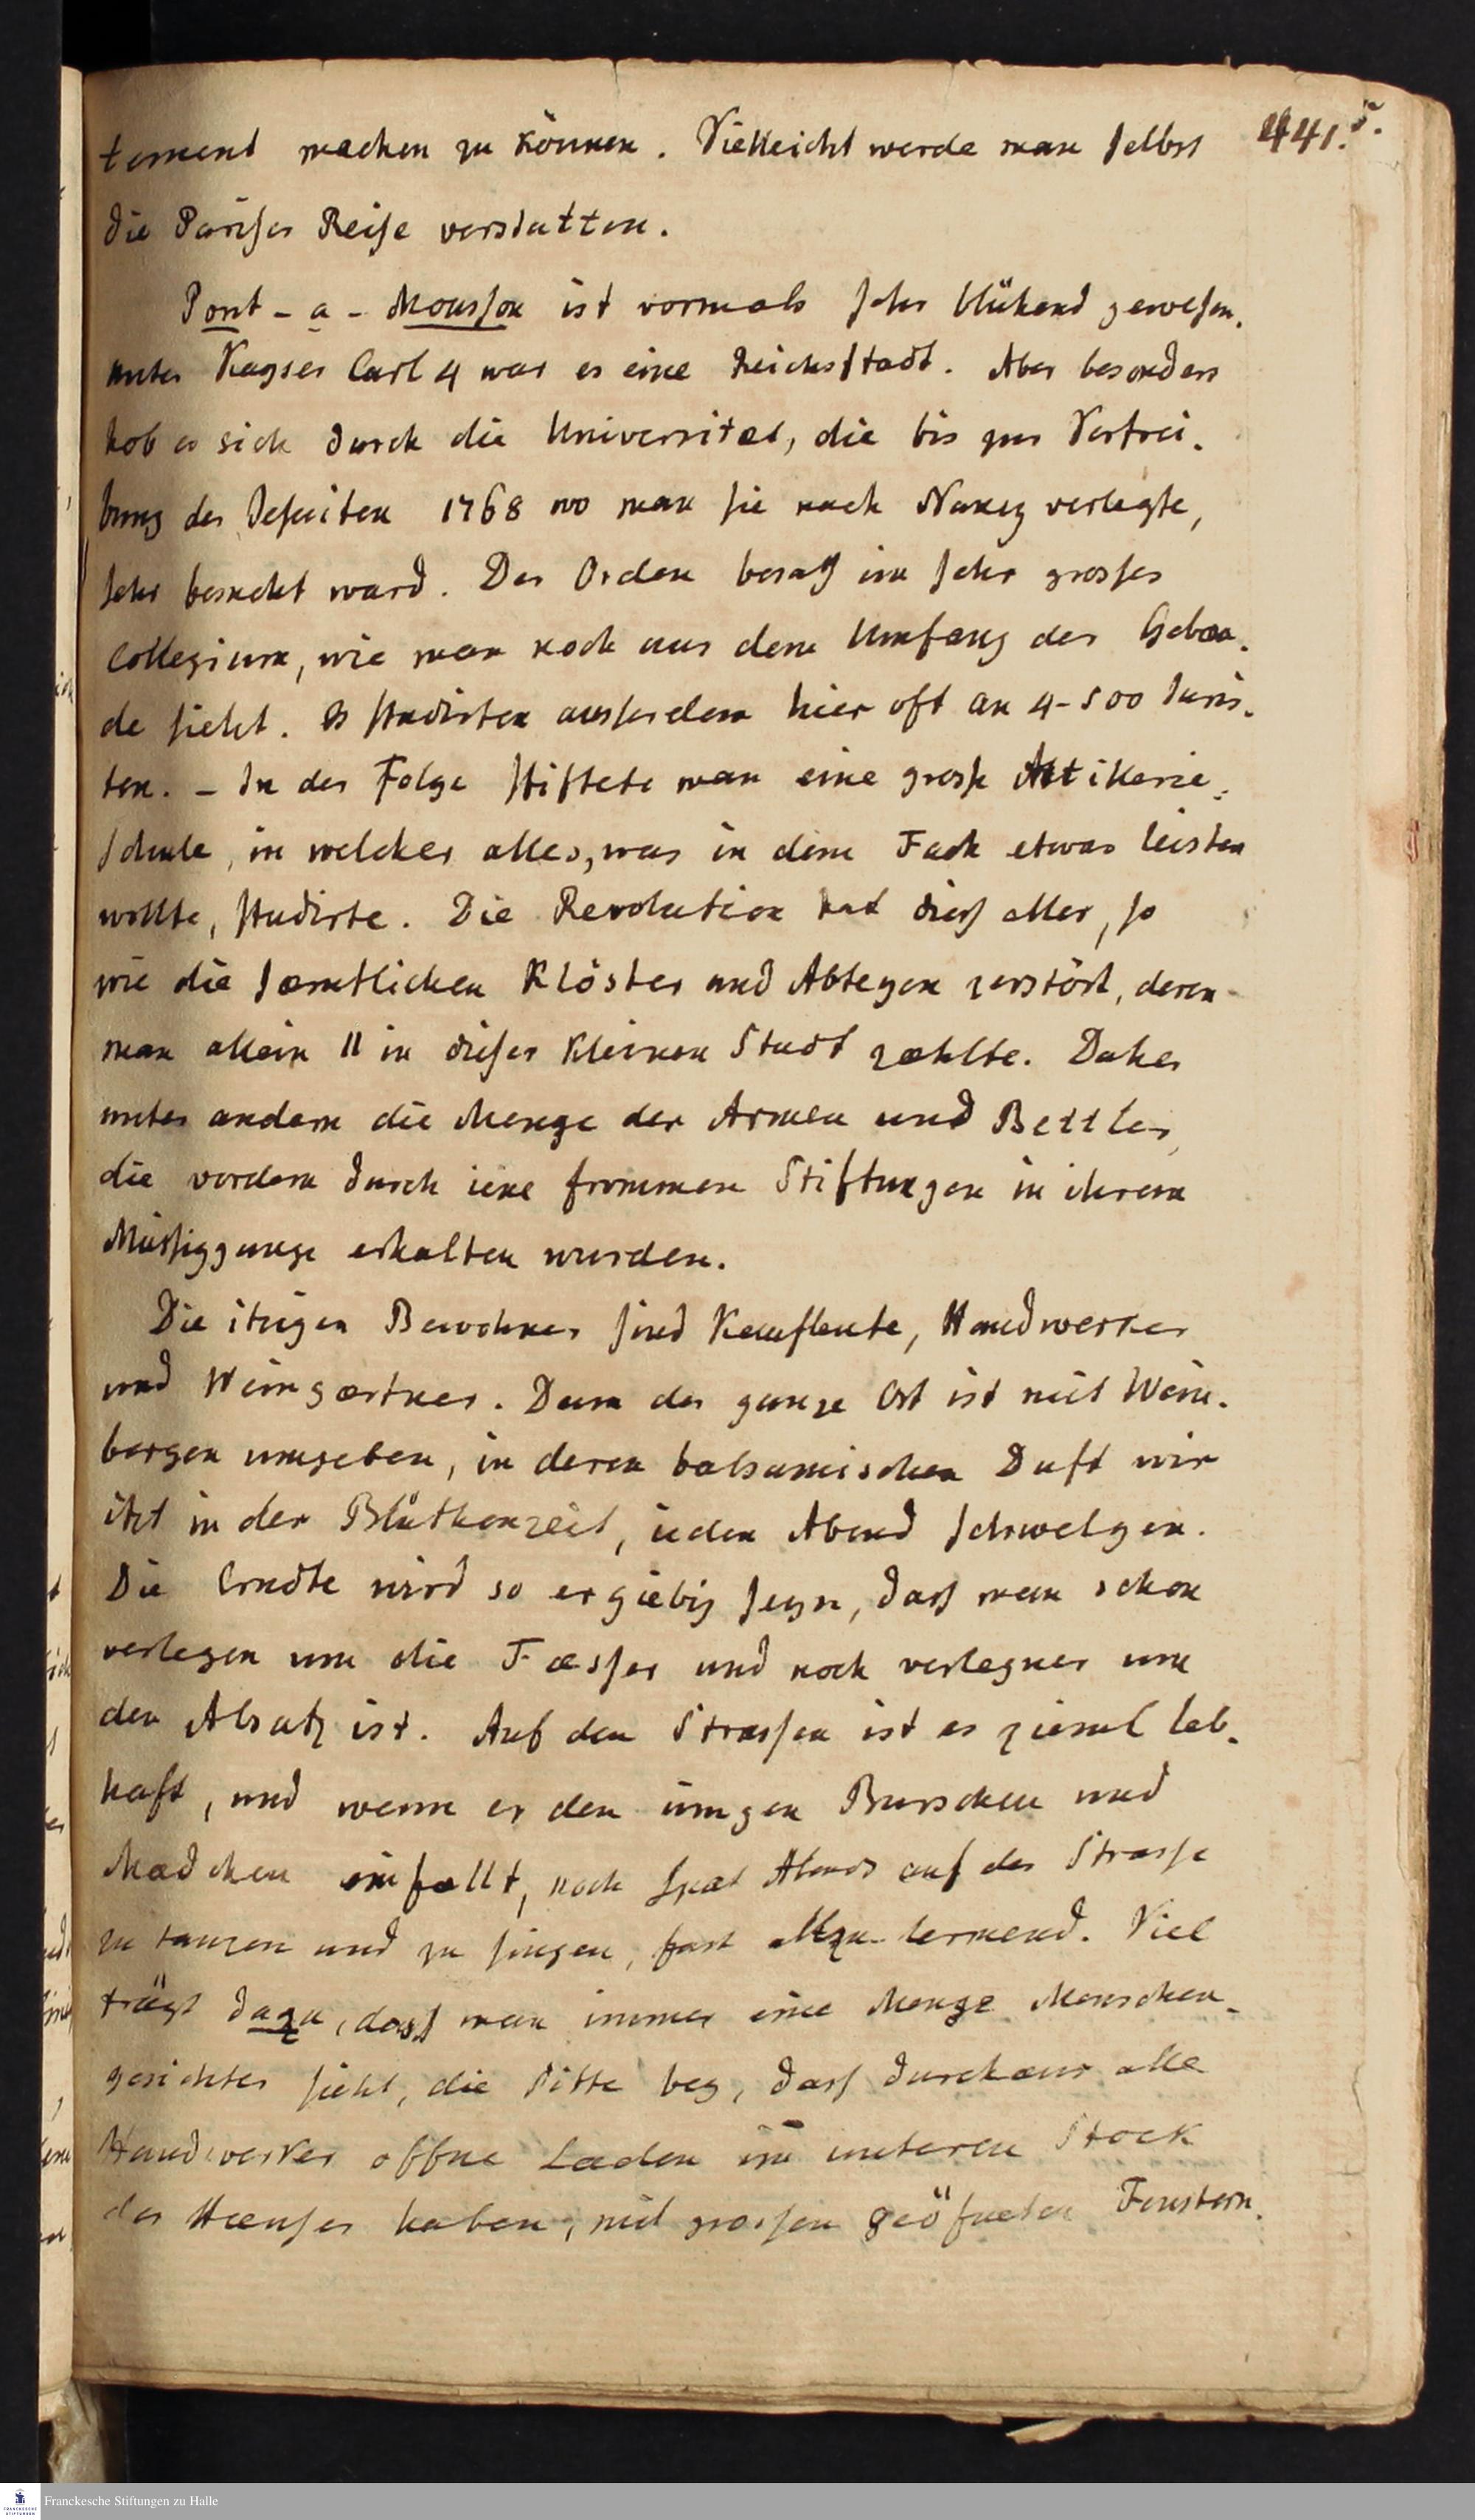 441. 5.
tement machen zu können. Vielleicht werde man selbst
die Pariser Reise verstatten.
Pont-a-Mousson ist vormals sehr blühend gewesen.
unter Kayser Carl 4 war es eine Reichsstadt. Aber besonders
hob es sich durch die Universitæt, die bis zur Vertrei-
bung der Jesuiten 1768 wo man sie nach Nancy verlegte,
sehr besucht ward. Der Orden besaß ein sehr grosses
Collegium, wie man noch aus dem Umfang der Gebæu-
de sieht. Es studirten ausserdem hier oft an 4-500 Juris-
ten. - In der Folge stiftete man eine grosse Artillerie-
schule, in welcher alles, was in dem Fach etwas leisten
wollte, studirte. Die Revolution hat dieß alles, so
wie die sæmtlichen Klöster und Abteyen zerstört, deren
man allein 11 in dieser kleinen Stadt zæhlte. Daher
unter andern die Menge der Armen und Bettler,
die vordem durch iene frommen Stiftungen in ihrem
Müssiggange erhalten wurden.
Die itzigen Bewohner sind Kaufleute, Handwerker
und Weingærtner. Denn der ganze Ort ist mit Wein-
bergen umgeben, in deren balsamischen Duft wir
itzt in der Blüthenzeit, ieden Abend schwelgen.
Die Erndte wird so ergiebig seyn, daß man schon
verlegen um die Fæsser und noch verlegner um
den Absatz ist. Auf den Strassen ist es zieml leb-
haft, und wenn es den iungen Burschen und
Mædchen einfællt, noch spæt Abends auf der Strasse
zu tanzen und zu singen, fast allzu lermend. Viel
trägt dazu, dass man immer eine Menge Menschen-
gesichter sieht, die Sitte bey, daß durchaus alle
Handwerker offne Laden im unteren Stock
der Hæuser haben, mit grossen geöfneten Fenstern.
Franckesche Stiftungen zu Halle